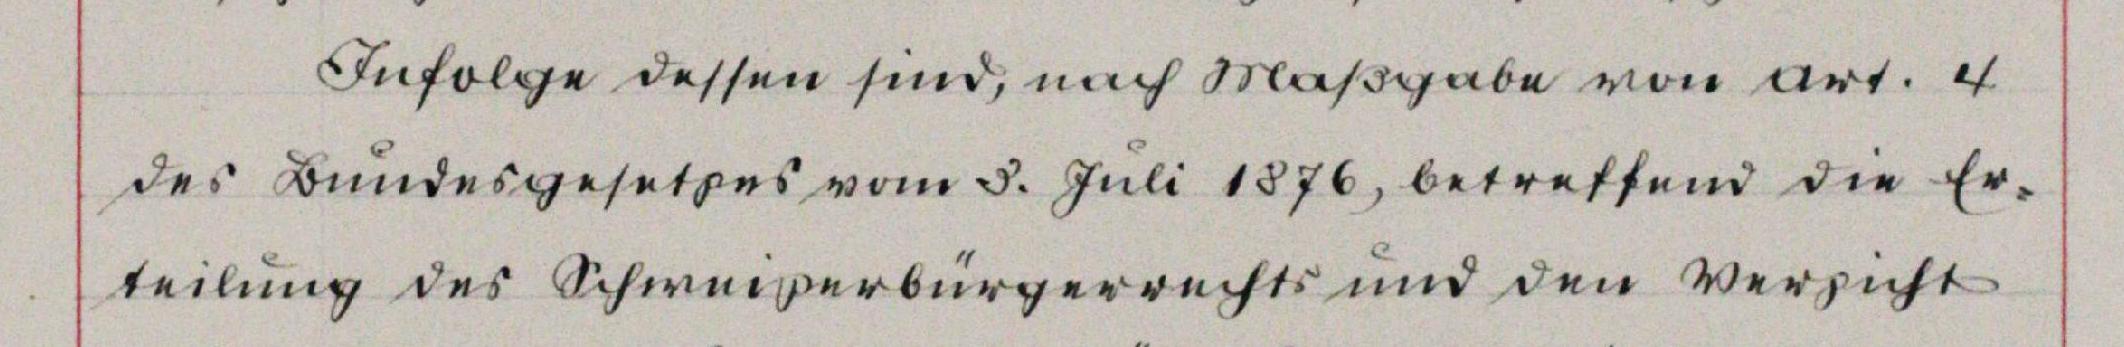 Infolge dessen sind, nach Maßgabe von Art. 4
des Bundesgesetzes vom 3. Juli 1876, betreffend die Er-
teilung des Schweizerbürgerrechts und den Verzicht